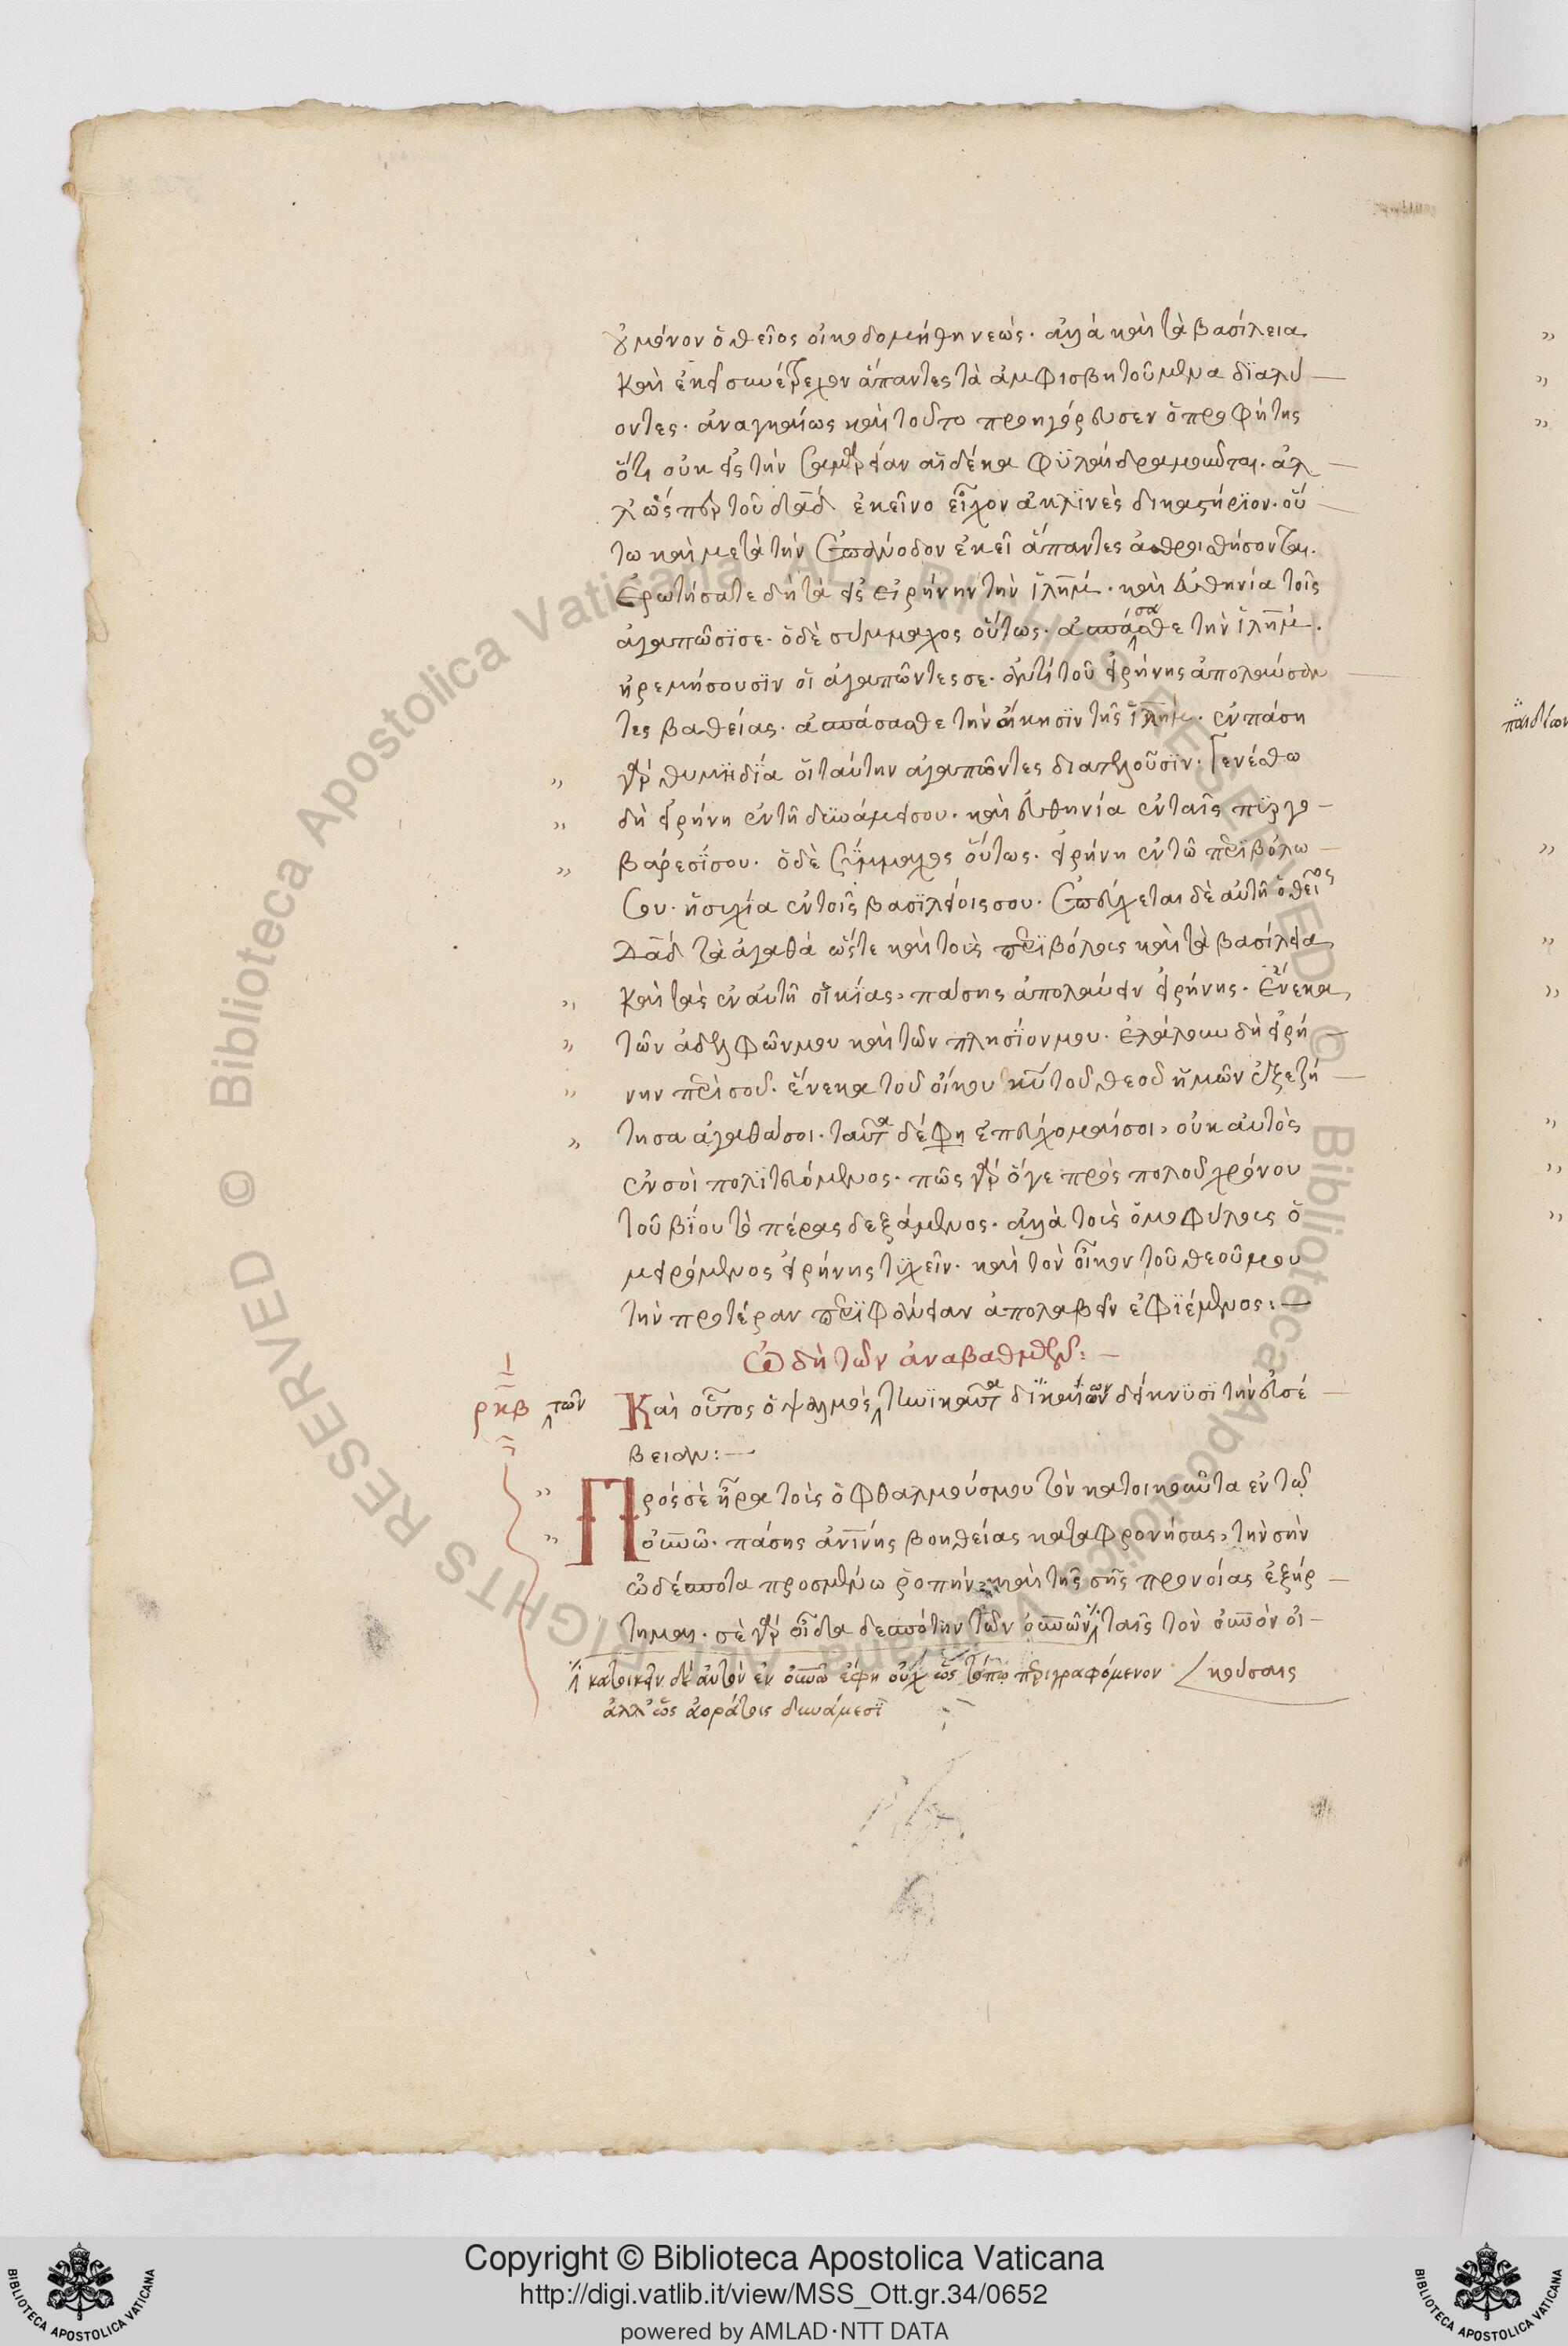 οὐ μόνον ὁ θεῖος οἰκοδομήθη νεώς· ἀλλὰ καὶ τὰ βασίλεια
καὶ ἐκεῖ συνέτρεχον ἅπαντες τὰ ἀμφισβητούμενα διαλύ
οντες· ἀναγκαίως καὶ τοῦτο προηγόρευσεν ὁ προφήτης
ὅτι οὐκ εἰς τὴν Σαμάρειαν αἱ δέκα φυλαὶ δραμοῦνται· ἀλ
λ' ὥσπερ τοῦ δᾱδ ἐκεῖνο εἶχον ἀκλινὲς δικαστήριον· οὕ
τω καὶ μετὰ τὴν ἐπάνοδον ἐκεῖ ἅπαντες ἀθροισθήσονται.
Ἐρωτήσατε δὴ τὰ εἰς εἰρήνην τὴν ἱλημ· καὶ εὐθηνία τοῖς
ἀγαπῶσί σε· ὁ δὲ σύμμαχος οὕτως· ἀσπάσασθε τὴν ἱλημ.
ἠρεμήσουσιν οἱ ἀγαπῶντες σε· ἀντὶ τοῦ εἰρήνης ἀπολαύσον
τες βαθείας· ἀσπάσασθε τὴν οἴκησιν τῆς ἱλημ· ἐν πάσῃ
γὰρ θυμηδίᾳ οἱ ταύτην ἀγαπῶντες διατελοῦσιν· Γενέσθω
δὴ εἰρήνη ἐν τῇ δυνάμει σου· καὶ εὐθηνία ἐν ταῖς πυργο
βάρεσί σου· ὁ δὲ Σύμμαχος οὕτως· εἰρήνη ἐν τῷ περιβόλῳ
σου· ἡσυχία ἐν τοῖς βασιλείοις σου· ἐπεύχεται δὲ αὐτῇ ὁ θεῖος
Δᾱδ τὰ ἀγαθά ὥστε καὶ τοὺς περιβόλους καὶ τὰ βασίλεια
καὶ τὰς ἐν αὐτῇ οἰκίας, πάσης ἀπολαύειν εἰρήνης· Ἕνεκα
τῶν ἀδελφῶν μου καὶ τῶν πλησίον μου· ἐλάλουν δὴ εἰρή
νην περὶ σοῦ· ἕνεκα τοῦ οἴκου κ̅υ̅ τοῦ θεοῦ ἡμῶν ἐξεζή
τησα ἀγαθά σοι· ταῦτα δέ φη ἐπεύχομαί σοι, οὐκ αὐτὸς
ἐν σοὶ πολιτευόμενος· πῶς γὰρ ὅγε πρὸς πολοῦ χρόνου
τοῦ βίου τὸ πέρας δεξάμενος· ἀλλὰ τοὺς ὁμοφύλους ὁ
μειρόμενος εἰρήνης τυχεῖν· καὶ τὸν οἶκον τοῦ θεοῦ μου
τὴν προτέραν περιφάνειαν ἀπολαβεῖν ἐφιέμενος:—
Ὠδὴ τῶν ἀναβαθμῶν:—
ρκβ τῶν Καὶ οὗτος ὁ ψαλμὸς τηνικαῦτα δικαίων δείκνυσι τὴν εὐσέ
βειαν:—
Πρός σὲ ἦρα τοὺς ὀφθαλμούς μου τὸν κατοικοῦντα ἐν τῷ
οὐ̅ν̅ω̅· πάσης ἀν̅ίνης βοηθείας καταφρονήσας, τὴν σὴν
ὦ δέσποτα προσμένω ῥοπήν, καὶ τῆς σῆς προνοίας ἐξήρ
τημαι· σὲ γὰρ οἶδα δεσπότην τῶν οὐ̅ν̅ῶν ταῖς τὸν οὐ̅ν̅ὸν οἰ
κούσαις
κατοικεῖν δὲ αὐτὸν ἐν οὐ̅ν̅ῷ ἔφη οὐχ ὡς τόπῳ περιγραφόμενον
ἀλλ' ὡς ἀοράτοις δυνάμεσι
Copyright © Biblioteca Apostolica Vaticana
http://digi.vatlib.it/view/MSS_Ott.gr.34/0652
powered by AMLAD·NTT DATA